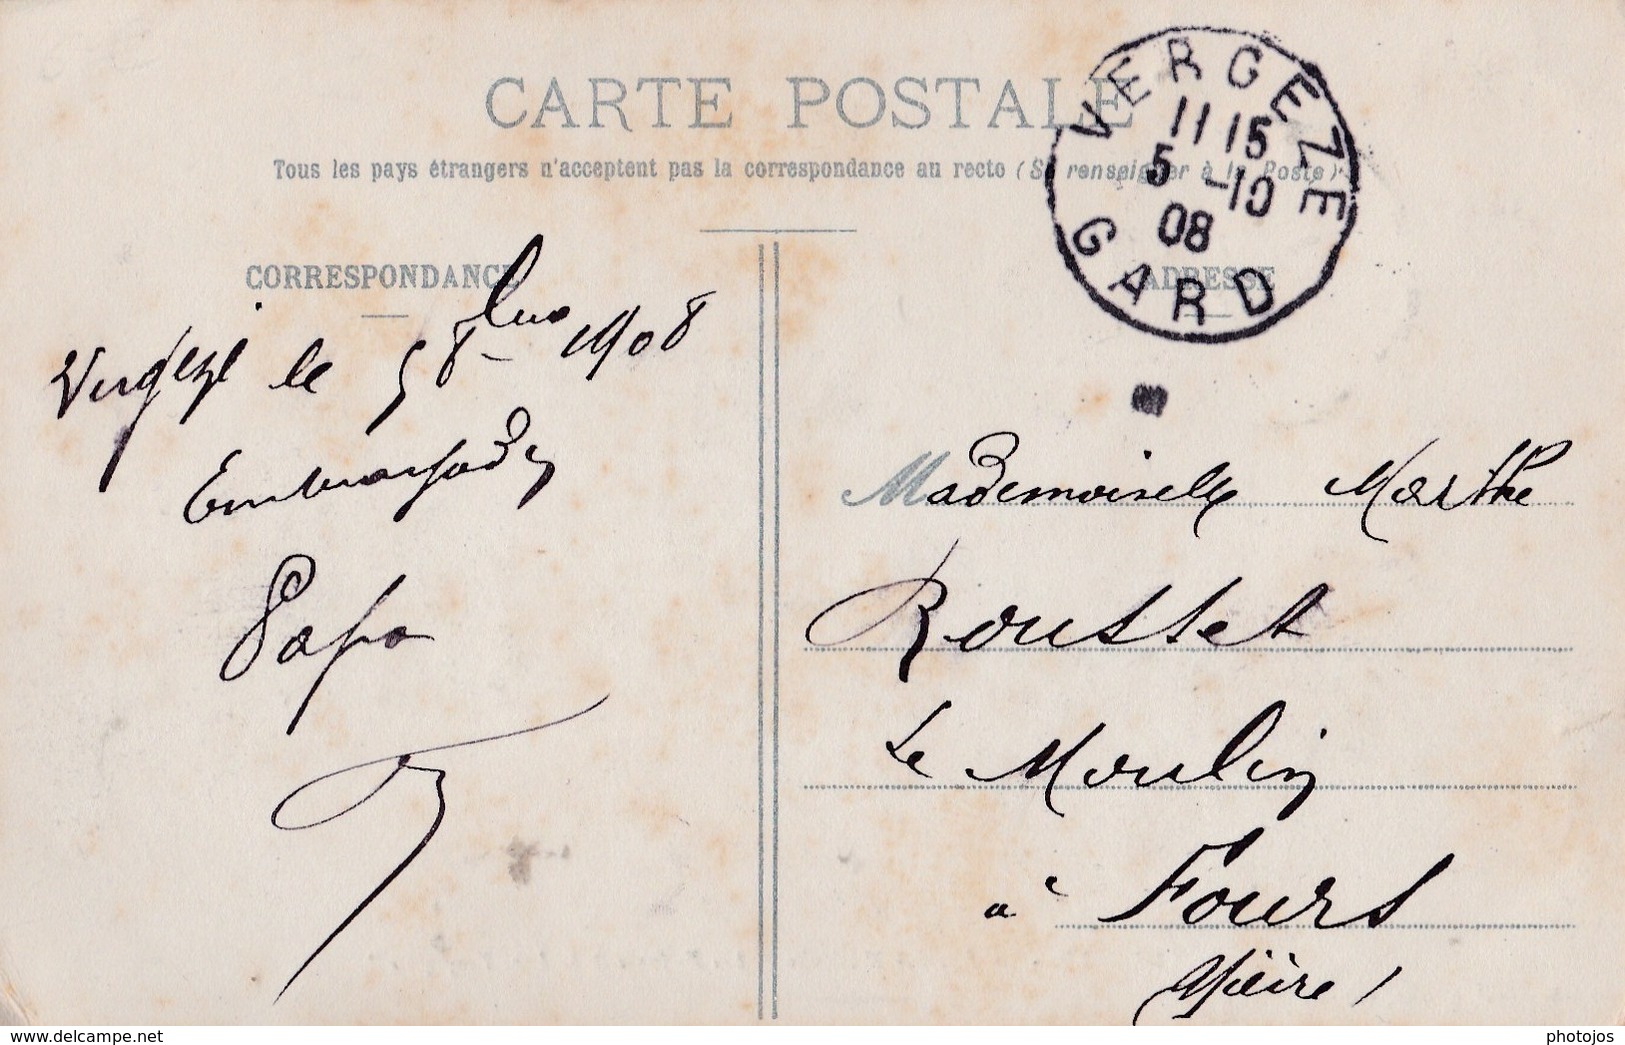 CARTE POSTALE
Tous les pays étrangers n'acceptent pas la correspondance au recto (Se renseigner à la Poste)
VERGEZE
11 15
5 -10
08
GARD
CORRESPONDANCE
Vergèze le 5 8bre 1908
Embrassades
Papa
ADRESSE
Mademoiselle Marthe
Rousset
Le Moulin
à Fours
Nièvre
photojos